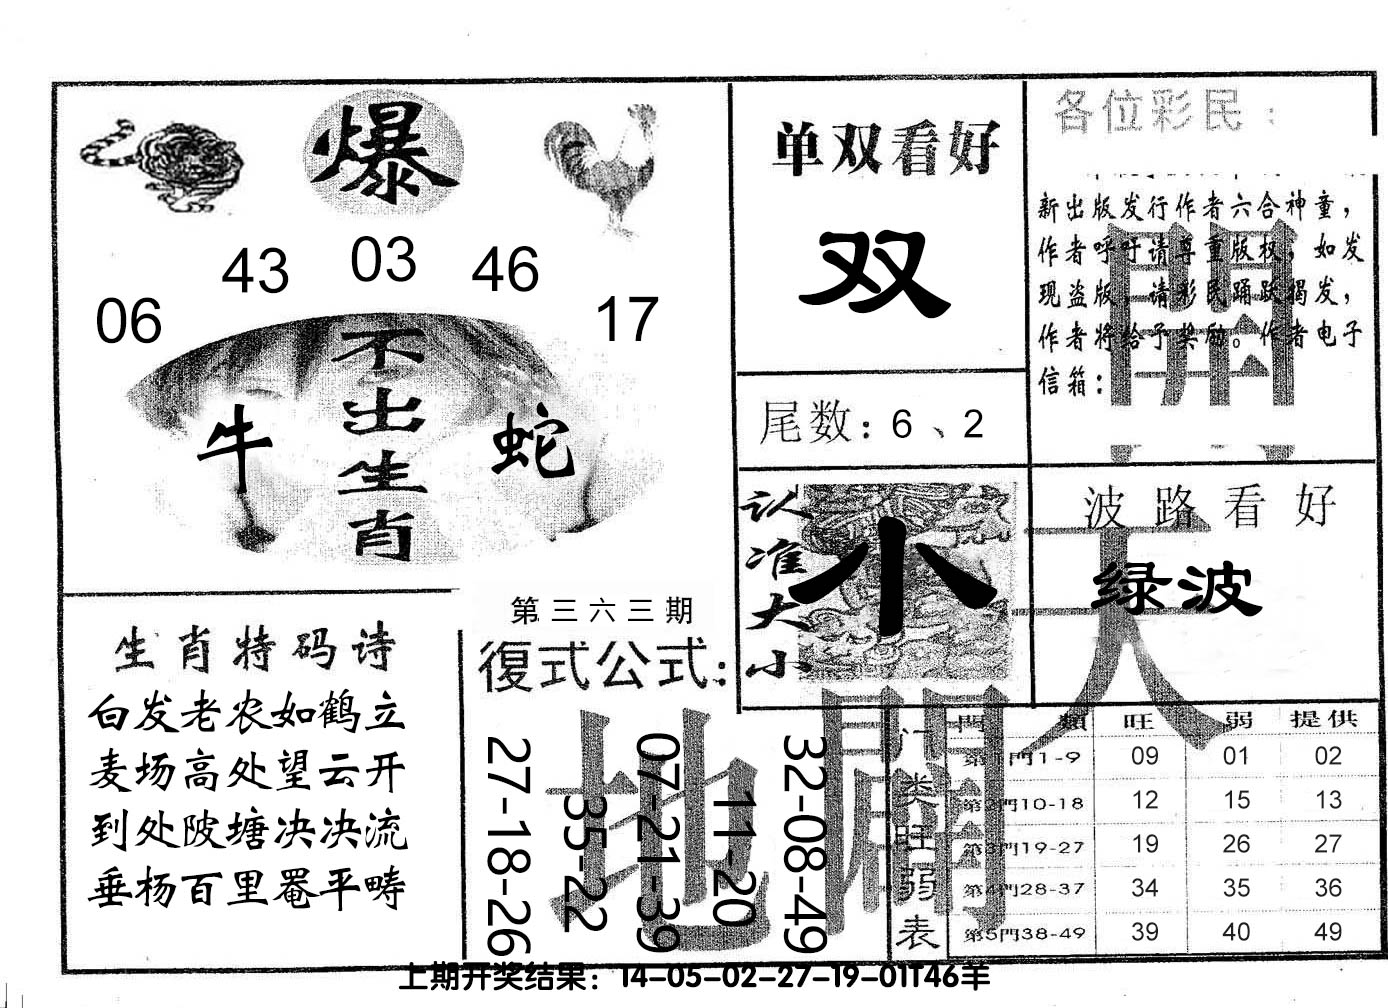 爆
06 43 03 46 17
不出生肖
牛 蛇
单双看好
双
尾数：6、2
各位彩民：
新出版发行作者六合神童，
作者呼吁请尊重版权，如发
现盗版，请彩民踊跃揭发，
作者将给予奖励。作者电子
信箱：
认准大小
小
波路看好
绿波
生肖特码诗
白发老农如鹤立
麦场高处望云开
到处陂塘决决流
垂杨百里罨平畴
第三六三期
復式公式：
27-18-26
35-22
07-21-39
11-20
32-08-49
天
地
開
门类旺弱表
門類 旺 弱 提供
第1門1-9 09 01 02
第2門10-18 12 15 13
第3門19-27 19 26 27
第4門28-37 34 35 36
第5門38-49 39 40 49
上期开奖结果：14-05-02-27-19-01T46羊